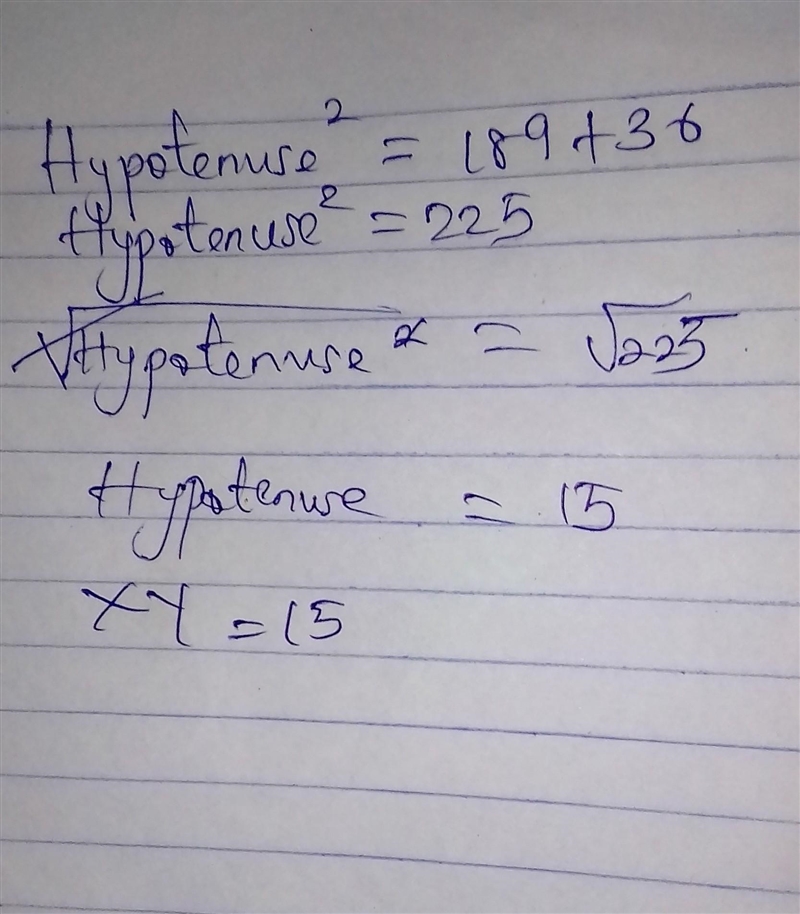 Hypotenuse² = 189 + 36
Hypotenuse² = 225
√Hypotenuse² = √225
Hypotenuse = 15
XY = 15